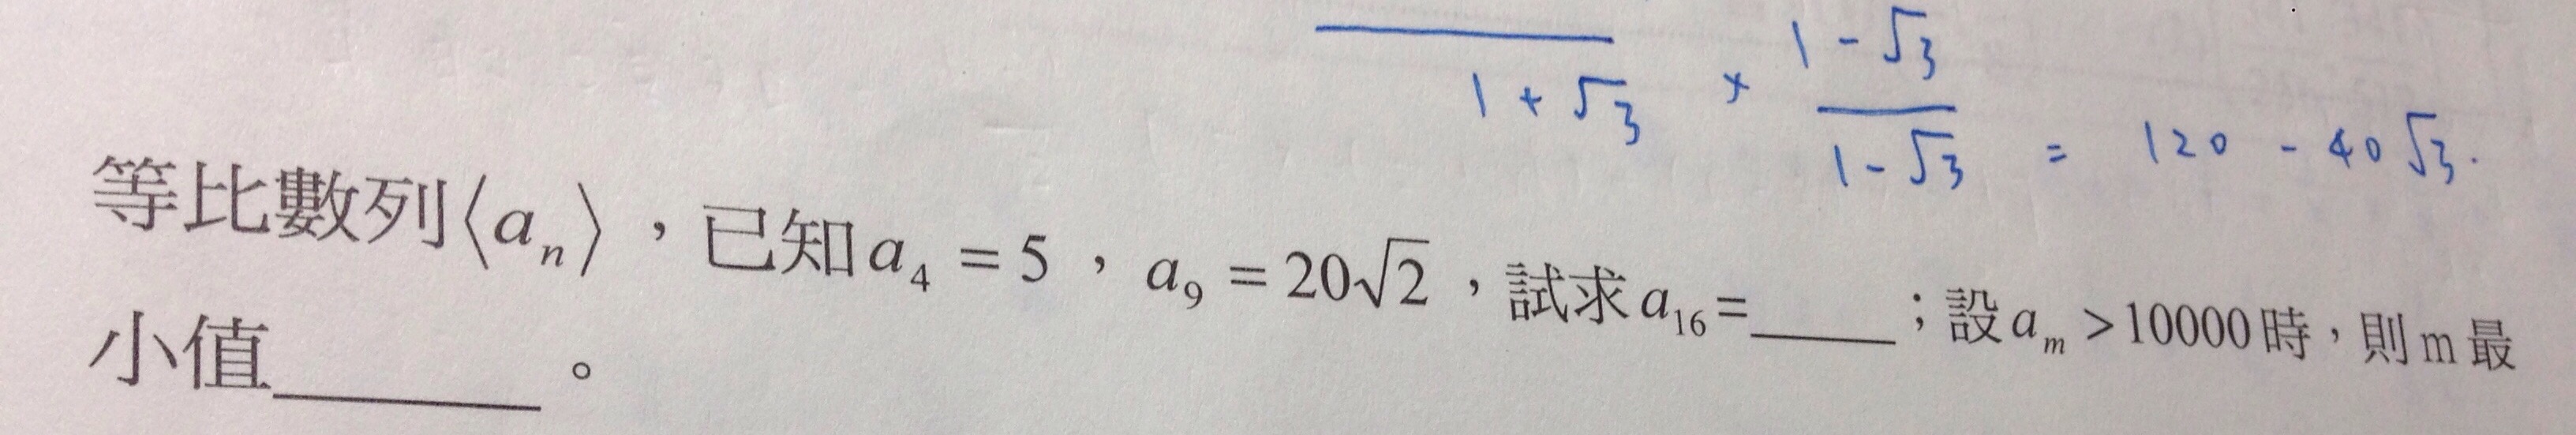 1 - √3
1 + √3 × 1 - √3 = 120 - 40√3.
等比數列⟨aₙ⟩，已知a₄ = 5，a₉ = 20√2，試求a₁₆=____；設aₘ >10000時，則m最
小值______。